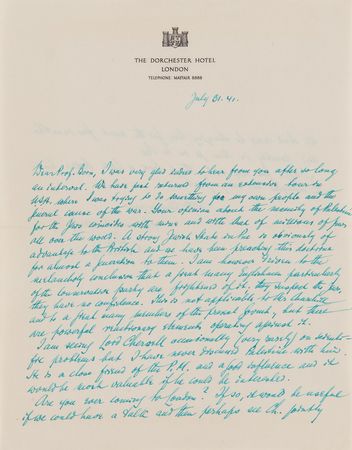 THE DORCHESTER HOTEL
LONDON
TELEPHONE MAYFAIR 8888
July 31. 41.
Dear Prof. Born, I was very glad indeed to hear from you after so long
an interval. We have just returned from an extensive tour in
USA. where I was trying to do something for my own people and the
general cause of the war. Your opinion about the necessity of Palestine
for the Jews coincides with mine and with that of millions of Jews
all over the world. A strong Jewish State in Pal. is obviously of
advantage to the British and we have been preaching this doctrine
for almost a generation to them. I am however driven to the
melancholy conclusion that a great many Englishmen particularly
of the conservative party are of it, they suspect the Jews,
they have no confidence. This is not applicable to Mr Churchill
and to a great many members of the present Govmt, but there
are powerful reactionary elements operating against it.
I am seeing Lord Cherwell occasionally (very rarely) on scienti-
fic problems but I have never discussed Palestine with him.
He is a close friend of the P.M. and a good influence and it
would be most valuable if he could be interested.
Are you ever coming to London? If so, it would be useful
if we could have a talk and then perhaps see Ch. jointly